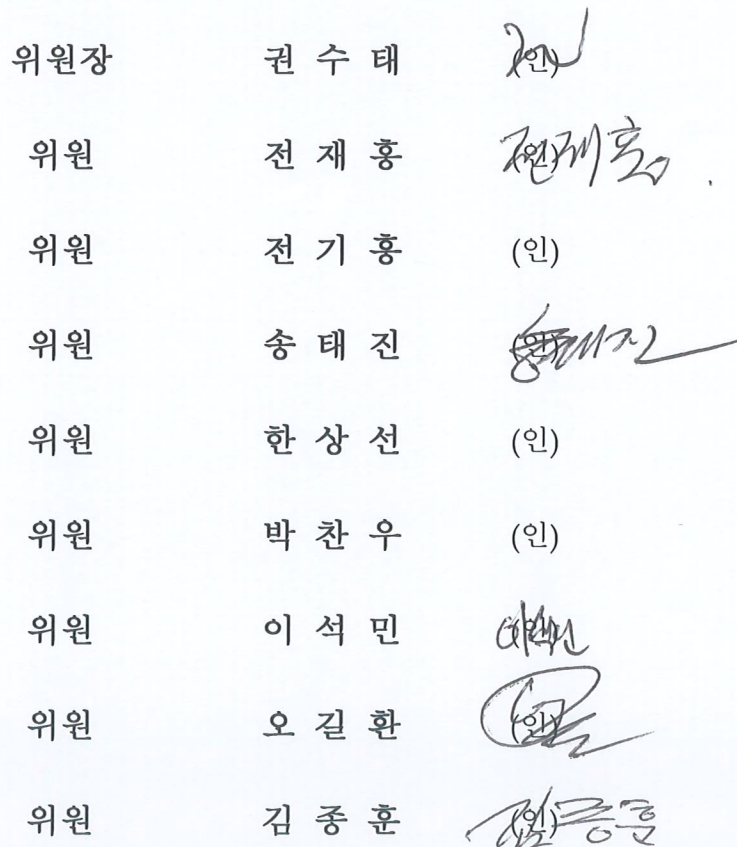 위원장 권 수 태 (인)
위원 전 재 홍 (인) 전재홍
위원 전 기 홍 (인)
위원 송 태 진 (인) 송태진
위원 한 상 선 (인)
위원 박 찬 우 (인)
위원 이 석 민 (인) 이석민
위원 오 길 환 (인)
위원 김 종 훈 (인) 김종훈